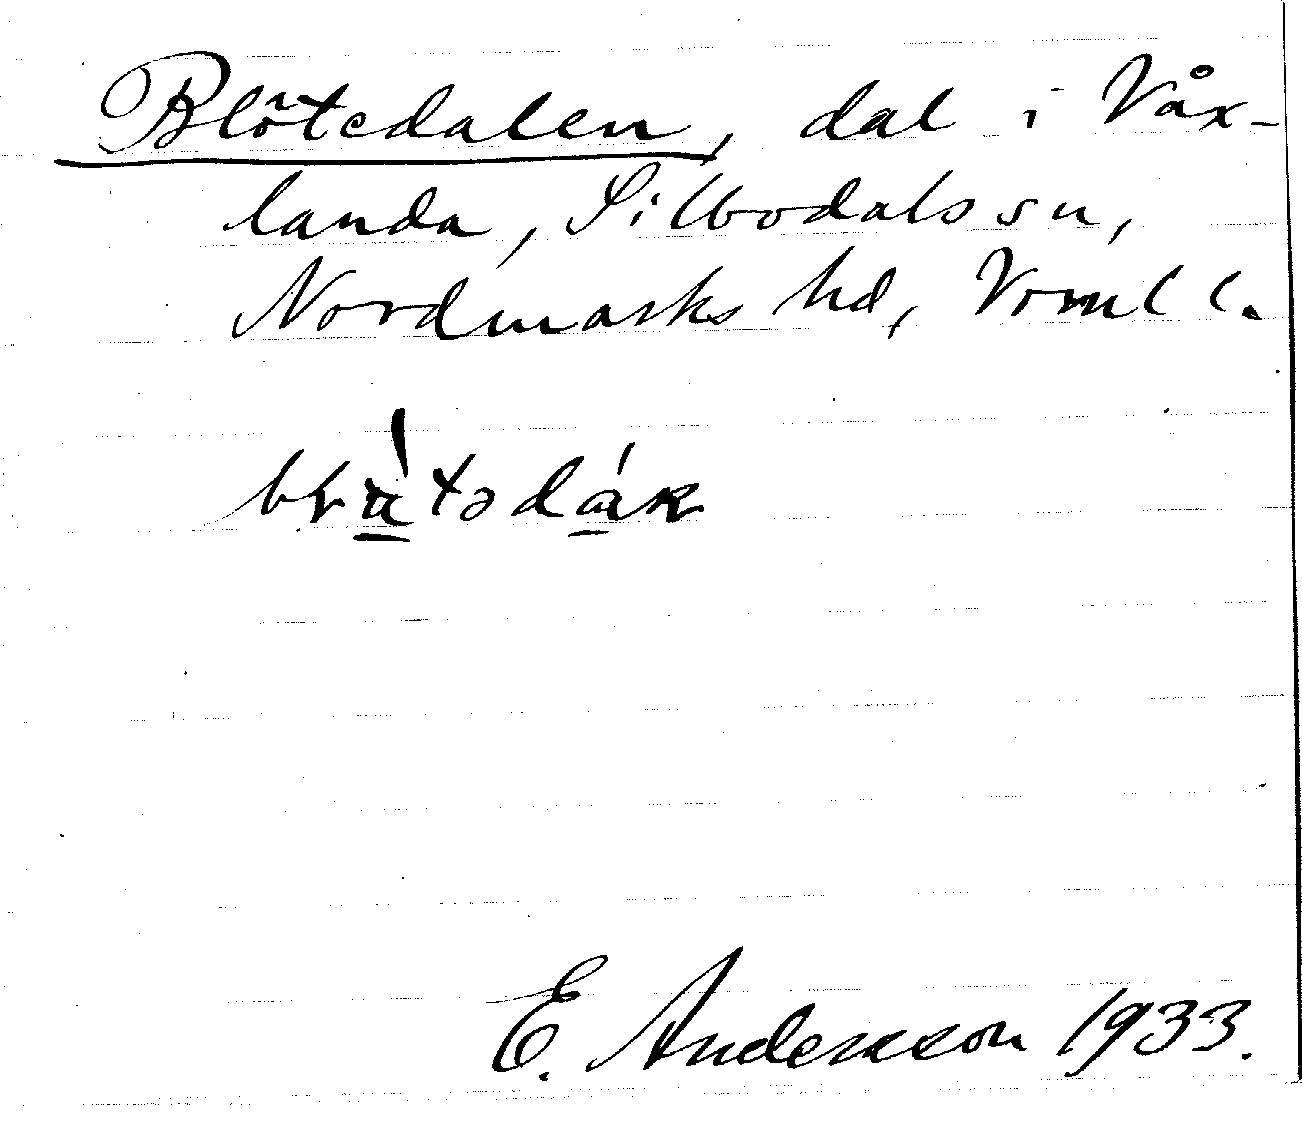 Blötedalen, dal i Våx-
landa, Silbodals sn,
Nordmarks hd, Vrml l.
E. Andersson 1933.